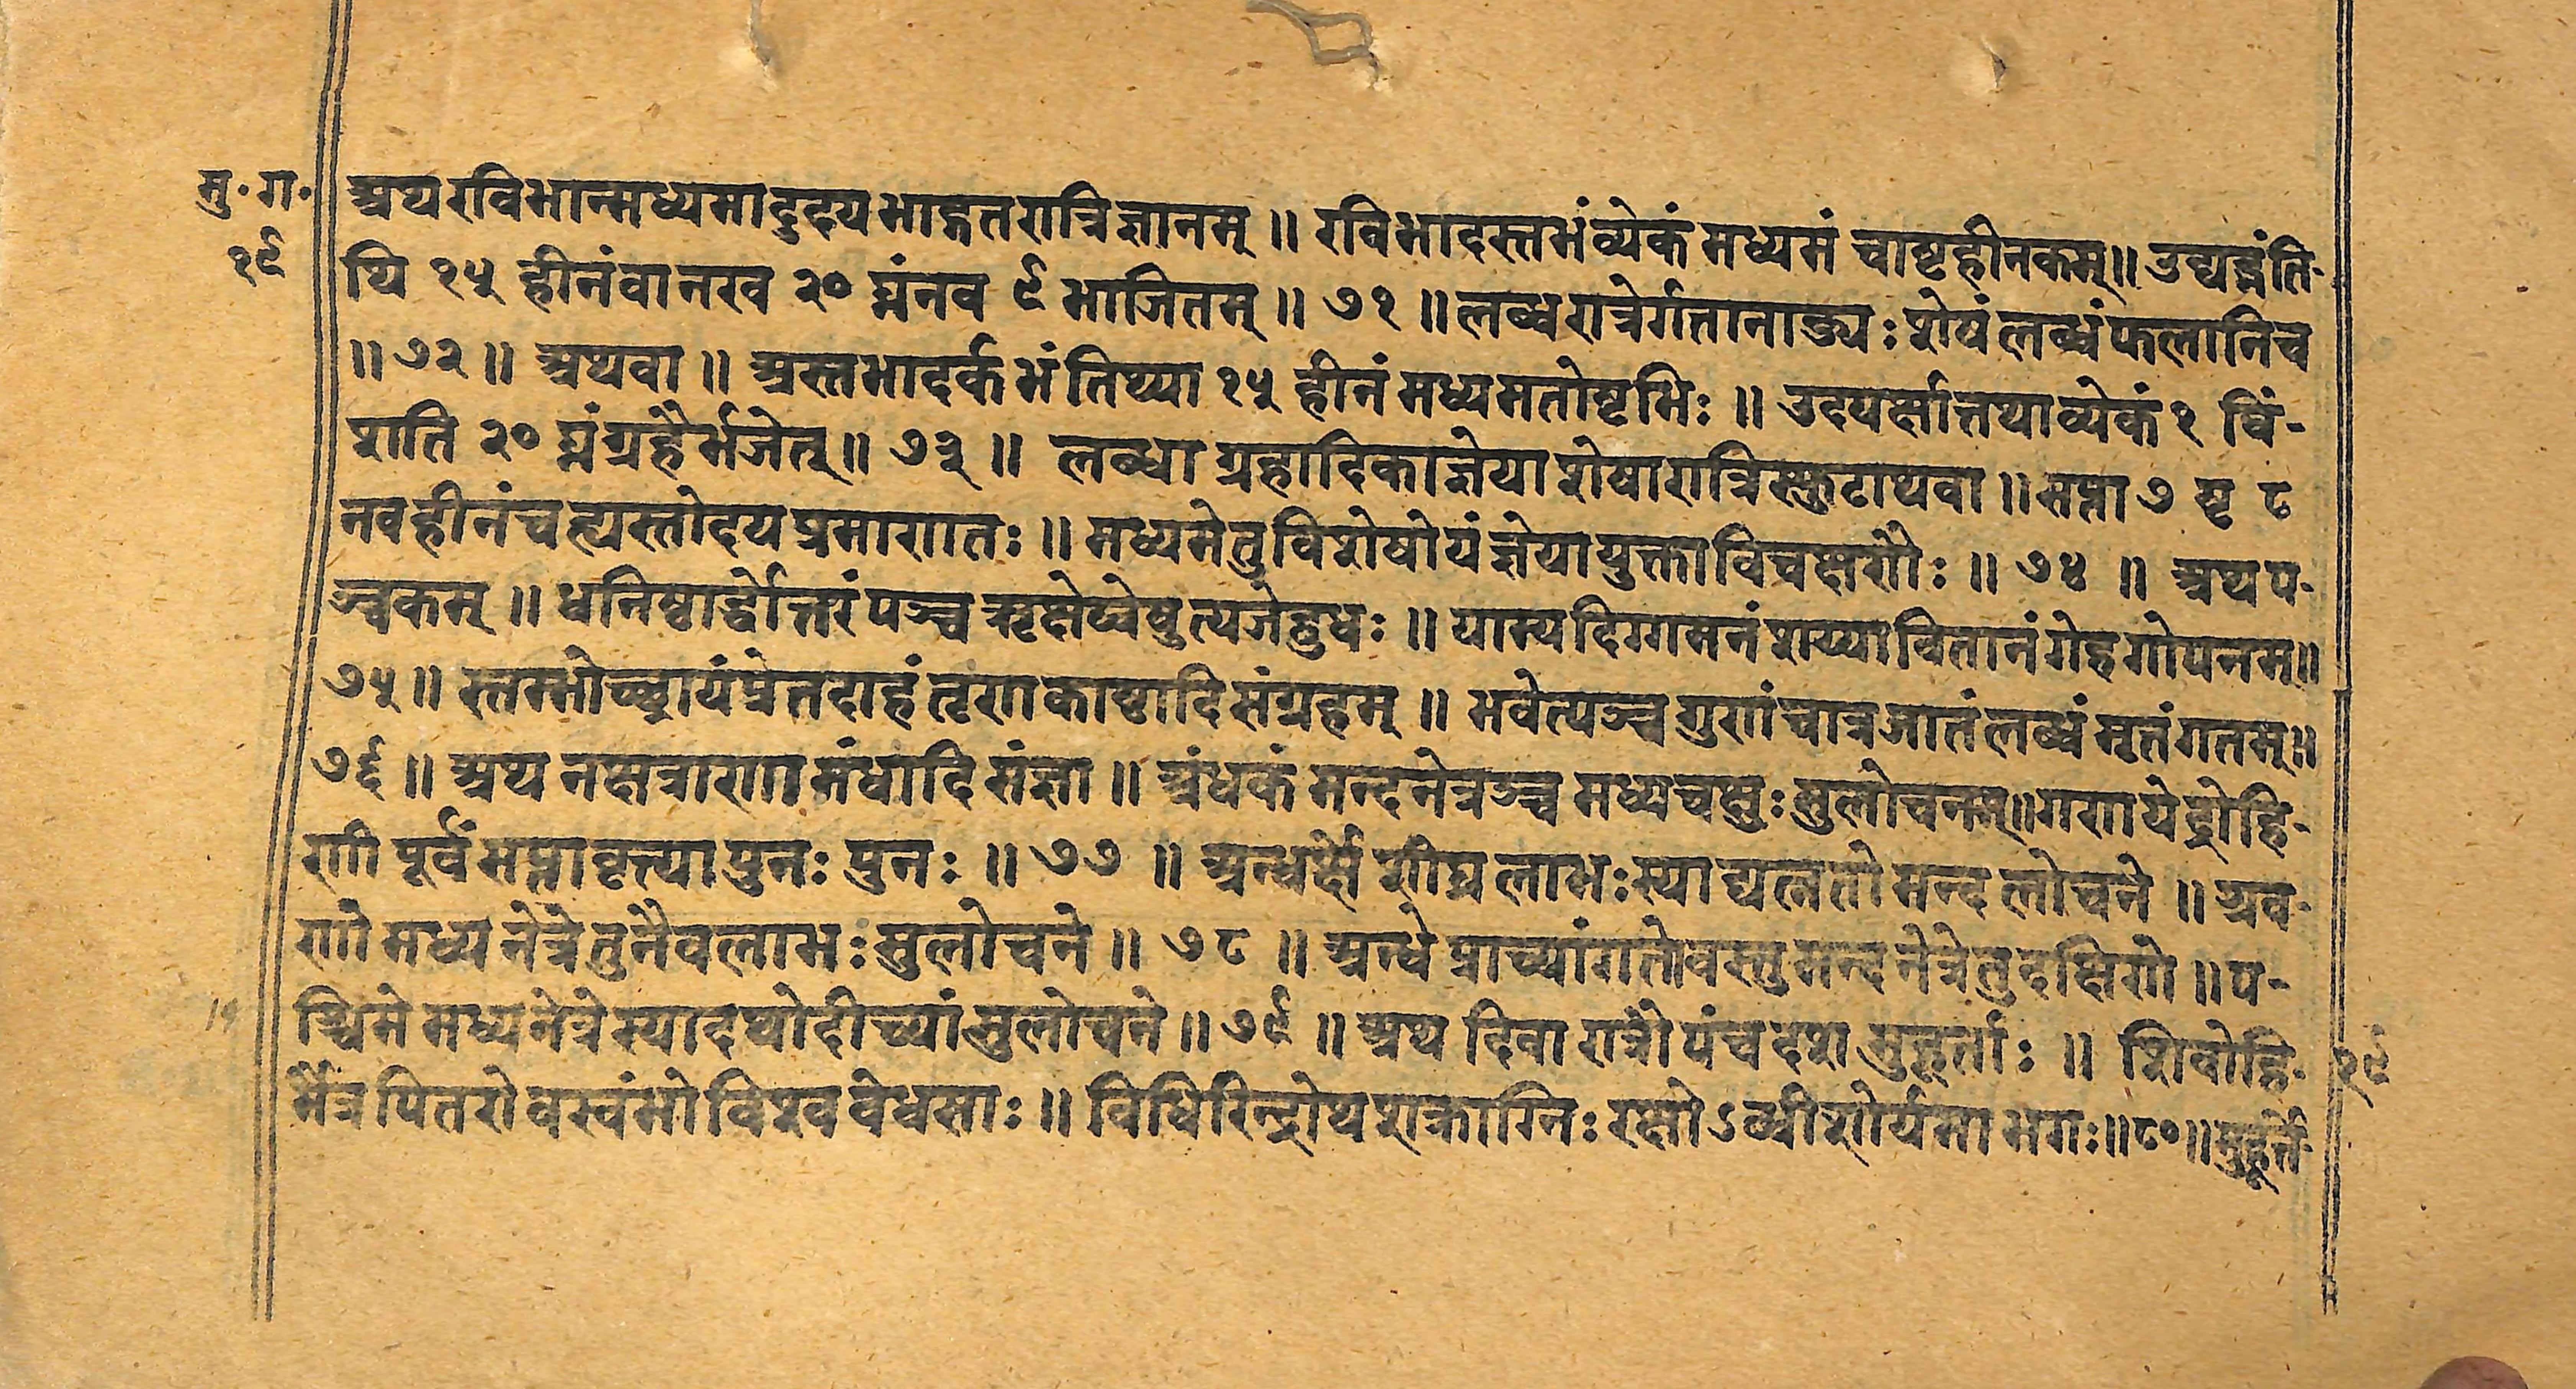 मु॰ ग॰
१९
अथ रविभान्मध्यमादुदयभाद्गतरात्रिज्ञानम् ॥ रविभादस्तभंव्येकं मध्यमं चाष्टहीनकम्॥ उद्यद्भंति-
थि १५ हीनंवा नख २० घ्नंनव ९ भाजितम् ॥ ७१ ॥ लब्धरात्रेर्गतानाड्यः शेषं लब्धंफलानिच
॥ ७२ ॥ अथवा ॥ अस्तभादर्कभं तिथ्या १५ हीनं मध्यमतोष्टभिः ॥ उदयर्क्षात्तथाव्येकं १ विं-
शति २० घ्नंग्रहैर्भजेत् ॥ ७३ ॥ लब्धा ग्रहादिकाज्ञेया शेषारात्रिस्फुटाथवा ॥ सप्ता ७ ष्ट ८
नवहीनंचह्यस्तोदयप्रमाणतः ॥ मध्यमेतुविशेषोयंज्ञेयायुक्ताविचक्षणैः ॥ ७४ ॥ अथप-
ञ्चकम् ॥ धनिष्ठार्द्धोत्तरंपञ्चऋक्षेष्वेषुत्यजेद्बुधः ॥ याम्यदिग्गमनंशय्यावितानंगेहगोपनम्॥
७५ ॥ स्तम्भोच्छ्रायंप्रेतदाहं तृणकाष्ठादिसंग्रहम् ॥ भवेत्पञ्चगुणंचात्रजातंलब्धंमृतंगतम्॥
७६ ॥ अथ नक्षत्राणामंधादि संज्ञा ॥ अंधकं मन्दनेत्रञ्च मध्यचक्षुः सुलोचनम्॥गणयेद्रोहि-
णी पूर्वंसप्तावृत्त्यापुनः पुनः ॥ ७७ ॥ अन्धर्क्षे शीघ्रलाभःस्याद्यत्नतो मन्दलोचने ॥ श्रव-
णो मध्यनेत्रेतुनैवलाभः सुलोचने ॥ ७८ ॥ अन्धे प्राच्यांगतोवस्तुमन्दनेत्रेतुदक्षिणे ॥ प-
श्चिमे मध्यनेत्रेस्यादथोदीच्यांसुलोचने ॥ ७९ ॥ अथ दिवा रात्रौ पंचदश मुहूर्ताः ॥ शिवोहि-
र्मैत्रपितरो वस्वंभो विश्ववेधसाः ॥ विधिरिन्द्रोथशक्राग्निः रक्षोऽब्धीशोर्यमा भगः॥८०॥मुहूर्ते-
१९